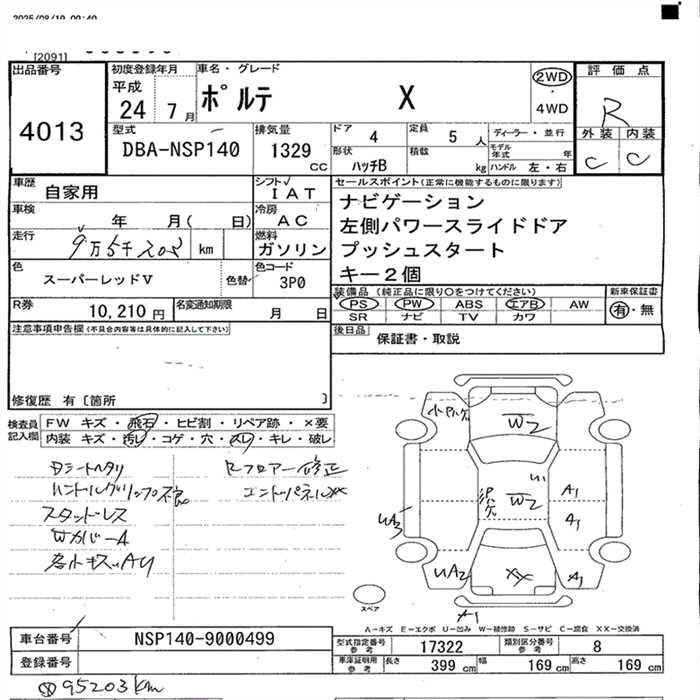 2025/08/19 09:40
[2091]
出品番号
4013
初度登録年月
平成
24 7月
車名・グレード
ポルテ X
2WD
・
4WD
評価点
R
外装 内装
C C
型式
DBA-NSP140
排気量
1329 CC
ドア 4
定員 5 人
ディーラー・並行
形状 ハッチB
積載 kg
モデル年式 年
ハンドル 左・右
車歴
自家用
シフト
IAT
車検
年 月( 日)
冷房
AC
走行
9万5千203 km
燃料
ガソリン
色
スーパーレッドV
色替
色コード
3P0
R券
10,210 円
名変通知期限
月 日
セールスポイント(正常に機能するものに限ります)
ナビゲーション
左側パワースライドドア
プッシュスタート
キー2個
装備品(純正品に限り○をつけてください)
新車保証書
PS PW ABS エアB AW
SR ナビ TV カワ
有・無
後日品
保証書・取説
注意事項申告欄(不具合内容等は具体的に記入して下さい)
修復歴 有〔箇所 〕
検査員記入欄
FW キズ・飛石・ヒビ割・リペア跡・×要
内装 キズ・汚レ・コゲ・穴・スレ・キレ・破レ
ハンドルグリップ不良
スタッドレス
Rフロアー修正
エンドパネルXX
W2
W2
A1
A1
UA3
UA2
XX
A1
A1
スペア
A-キズ E-エクボ U-凹み W-補修跡 S-サビ C-腐食 XX-交換済
車台番号
NSP140-9000499
登録番号
型式指定番号 参考
17322
類別区分番号 参考
8
車庫証明用 参考
長さ 399 cm 幅 169 cm 高さ 169 cm
95203km